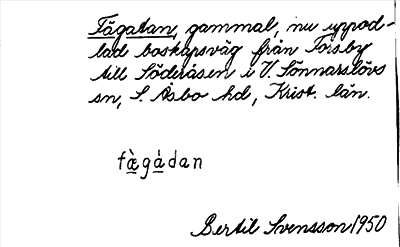 Fägatan, gammal, nu uppod-
lad boskapsväg från Torsby
till Söderåsen i V. Sönnarslövs
sn, S. Åsbo hd, Krist. län.
fæ̀gádan
Bertil Svensson 1950